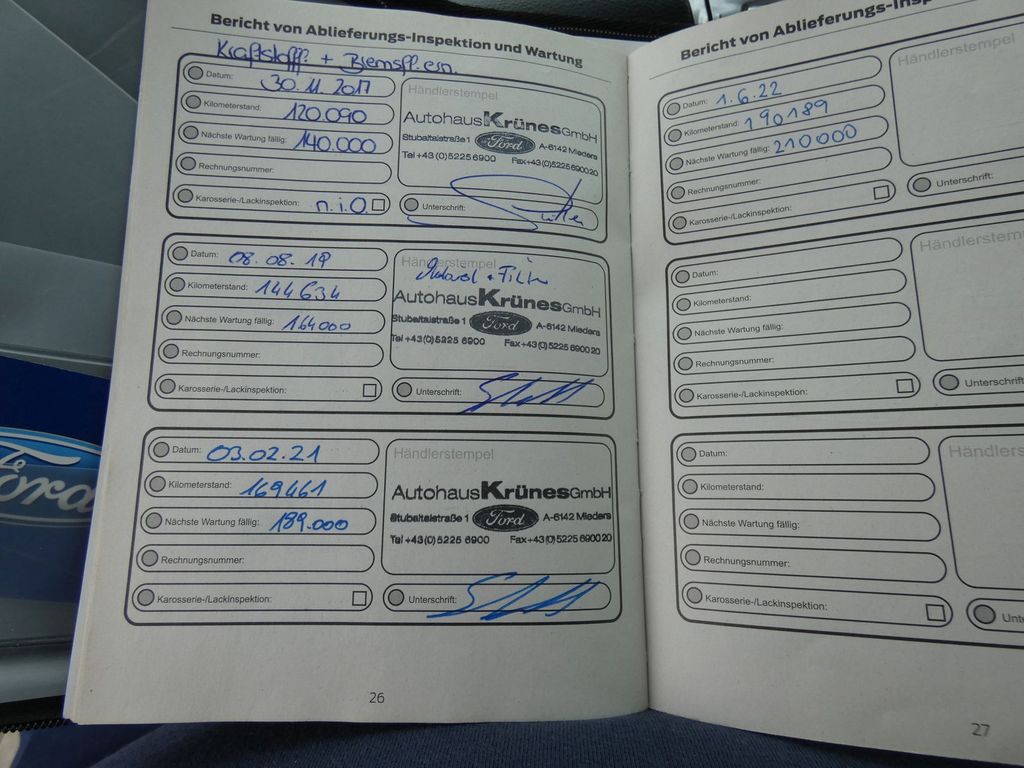 Bericht von Ablieferungs-Inspektion und Wartung
Kraftstofff. + Bremsfl. ern.
Datum: 30.11.2017
Kilometerstand: 120.090
Nächste Wartung fällig: 140.000
Rechnungsnummer:
Karosserie-/Lackinspektion: n.i.O.
Händlerstempel
Autohaus Krünes GmbH
Stubaitalstraße 1 Ford A-6142 Mieders
Tel +43(0)5225 6900 Fax+43(0)5225 6900 20
Unterschrift:
Datum: 08.08.19
Kilometerstand: 144634
Nächste Wartung fällig: 164000
Rechnungsnummer:
Karosserie-/Lackinspektion:
Händlerstempel
+
Autohaus Krünes GmbH
Stubaitalstraße 1 Ford A-6142 Mieders
Tel +43(0)5225 6900 Fax+43(0)5225 6900 20
Unterschrift:
Datum: 03.02.21
Kilometerstand: 169461
Nächste Wartung fällig: 189.000
Rechnungsnummer:
Karosserie-/Lackinspektion:
Händlerstempel
Autohaus Krünes GmbH
Stubaitalstraße 1 Ford A-6142 Mieders
Tel +43(0)5225 6900 Fax+43(0)5225 6900 20
Unterschrift:
26
Bericht von Ablieferungs-Insp
Datum: 1.6.22
Kilometerstand: 190189
Nächste Wartung fällig: 210000
Rechnungsnummer:
Karosserie-/Lackinspektion:
Händlerstempel
Unterschrift:
Datum:
Kilometerstand:
Nächste Wartung fällig:
Rechnungsnummer:
Karosserie-/Lackinspektion:
Händlerstem
Unterschrift
Datum:
Kilometerstand:
Nächste Wartung fällig:
Rechnungsnummer:
Karosserie-/Lackinspektion:
Händlers
Unte
27
Ford